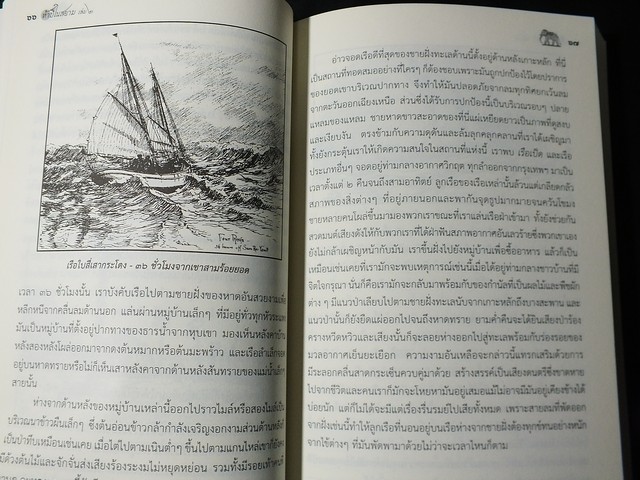 ๖๖
เรือใบสี่เสากระโดง - ๓๖ ชั่วโมงจากเขาสามร้อยยอด
เวลา ๓๖ ชั่วโมงนั้น เราบังคับเรือไปตามชายฝั่งของหาดอันสวยงาม
หลีกหนีจากคลื่นลมด้านนอก แล่นผ่านหมู่บ้านเล็กๆ ที่มีอยู่ทั่วทุก
มันเป็นหมู่บ้านที่ตั้งอยู่ปากทางของธารน้ำจากหุบเขา มองเห็นหลังคาบ้าน
หลังสองหลังโผล่ออกมาจากดงต้นหมากหรือต้นมะพร้าว และเรือลำเล็กจอด
อยู่บนหาดทรายหรือไม่ก็เห็นเสาหลังคาจากด้านหลังสันทรายของแม่น้ำเล็กๆ
สายนั้น
ห่างจากด้านหลังของหมู่บ้านเหล่านี้ออกไปราวไมล์หรือสองไมล์เป็น
บริเวณนาข้าวผืนเล็กๆ ซึ่งต้นอ่อนข้าวกล้ากำลังเจริญงอกงามส่วนด้านหลัง
เป็นป่าทึบเหมือนเช่นเคย เมื่อไต่ไปตามเนินต่ำๆ ขึ้นไปตามแกนไหล่เขา
มีด้วงต้นไม้และจักจั่นส่งเสียงร้องระงมไม่หยุดหย่อน รวมทั้งมีรอยเท้า
๖๗
อ่าวจอดเรือดีที่สุดของชายฝั่งทะเลด้านนี้ตั้งอยู่ด้านหลังเกาะหลัก ที่นี่
เป็นสถานที่ทอดสมออย่างที่ใครๆ ก็ต้องชอบเพราะมันถูกปกป้องไว้โดยปราการ
ของยอดเขาบริเวณปากทาง จึงทำให้มันปลอดภัยจากลมทุกทิศยกเว้นลม
จากตะวันออกเฉียงเหนือ ส่วนซึ่งได้รับการปกป้องนี้เป็นบริเวณรอบๆ ปลาย
แหลมของแหลม ชายหาดขาวสะอาดของที่นี่แผ่เหยียดยาวเป็นภาพที่ดูสงบ
และเงียบงัน ตรงข้ามกับความดุดันและล้มลุกคลุกคลานที่เราได้เผชิญมา
ทั้งยังกระตุ้นเราให้เกิดความสนใจในสถานที่แห่งนี้ เราพบ เรือเป็ด และเรือ
ประเภทอื่นๆ จอดอยู่ท่ามกลางอากาศวิกฤต ทุกลำออกจากกรุงเทพฯ มาเป็น
เวลาตั้งแต่ ๒ คืนจนถึงสามอาทิตย์ ลูกเรือของเรือเหล่านั้นล้วนแต่เกลียดกลัว
สภาพของสิ่งต่างๆ ที่อยู่ภายนอกและพากันจุดธูปมากมายจนควันโขมง
ชายหลายคนโผล่ขึ้นมามองพวกเราขณะที่เราแล่นเรือฝ่าเข้ามา ทั้งยังช่วยกัน
สวดมนต์เสียงดังให้กับพวกเราที่ได้ฝ่าฟันสภาพอากาศอันเลวร้ายซึ่งพวกเขาเอง
ยังไม่กล้าเผชิญหน้ากับมัน เราขึ้นฝั่งไปยังหมู่บ้านเพื่อซื้ออาหาร แล้วก็เป็น
เหมือนเช่นเคยที่เรามักจะพบเหตุการณ์เช่นนี้เมื่อได้อยู่ท่ามกลางชาวบ้านที่มี
จิตใจกรุณา นั่นก็คือเรามักจะกลับมาพร้อมกับของกำนัลที่เป็นผลไม้และพืชผัก
ต่าง ๆ มีแนวป่าเลียบไปตามชายฝั่งทะเลนับจากเกาะหลักถึงบางสะพาน และ
และแนวป่านั้นก็ยังยืดแผ่ออกไปจนถึงหาดทราย ยามค่ำคืนจะได้ยินเสียงป่าร้อง
คร่างหวีดหวิวและเสียงนั้นก็จะลอยห่างออกไปสู่ทะเลพร้อมกับร่องรอยของ
มวลอากาศเย็นยะเยือก ความงามอันเหลือจะกล่าวนี้แทรกเสริมด้วยการ
มีระลอกคลื่นสาดกระเซ็นควบคู่มาด้วย สร้างสรรค์เป็นเสียงดนตรีซึ่งขาดหาย
ไปจากชีวิตและคนเราก็มักจะโหยหามันอยู่เสมอแม้ไม่อาจมีมันอยู่เคียงข้างได้
บ่อยนัก แต่ก็ไม่ได้จะมีแต่เรื่องรื่นรมย์ไปเสียทั้งหมด เพราะสายลมที่พัดออก
จากฝั่งเช่นนี้ทำให้ลูกเรือที่นอนอยู่บนเรือห่างจากชายฝั่งต้องทุกข์ทนอย่างหนัก
จากไข้ต่างๆ ที่มันพัดพามาด้วยไม่ว่าจะเวลาไหนก็ตาม